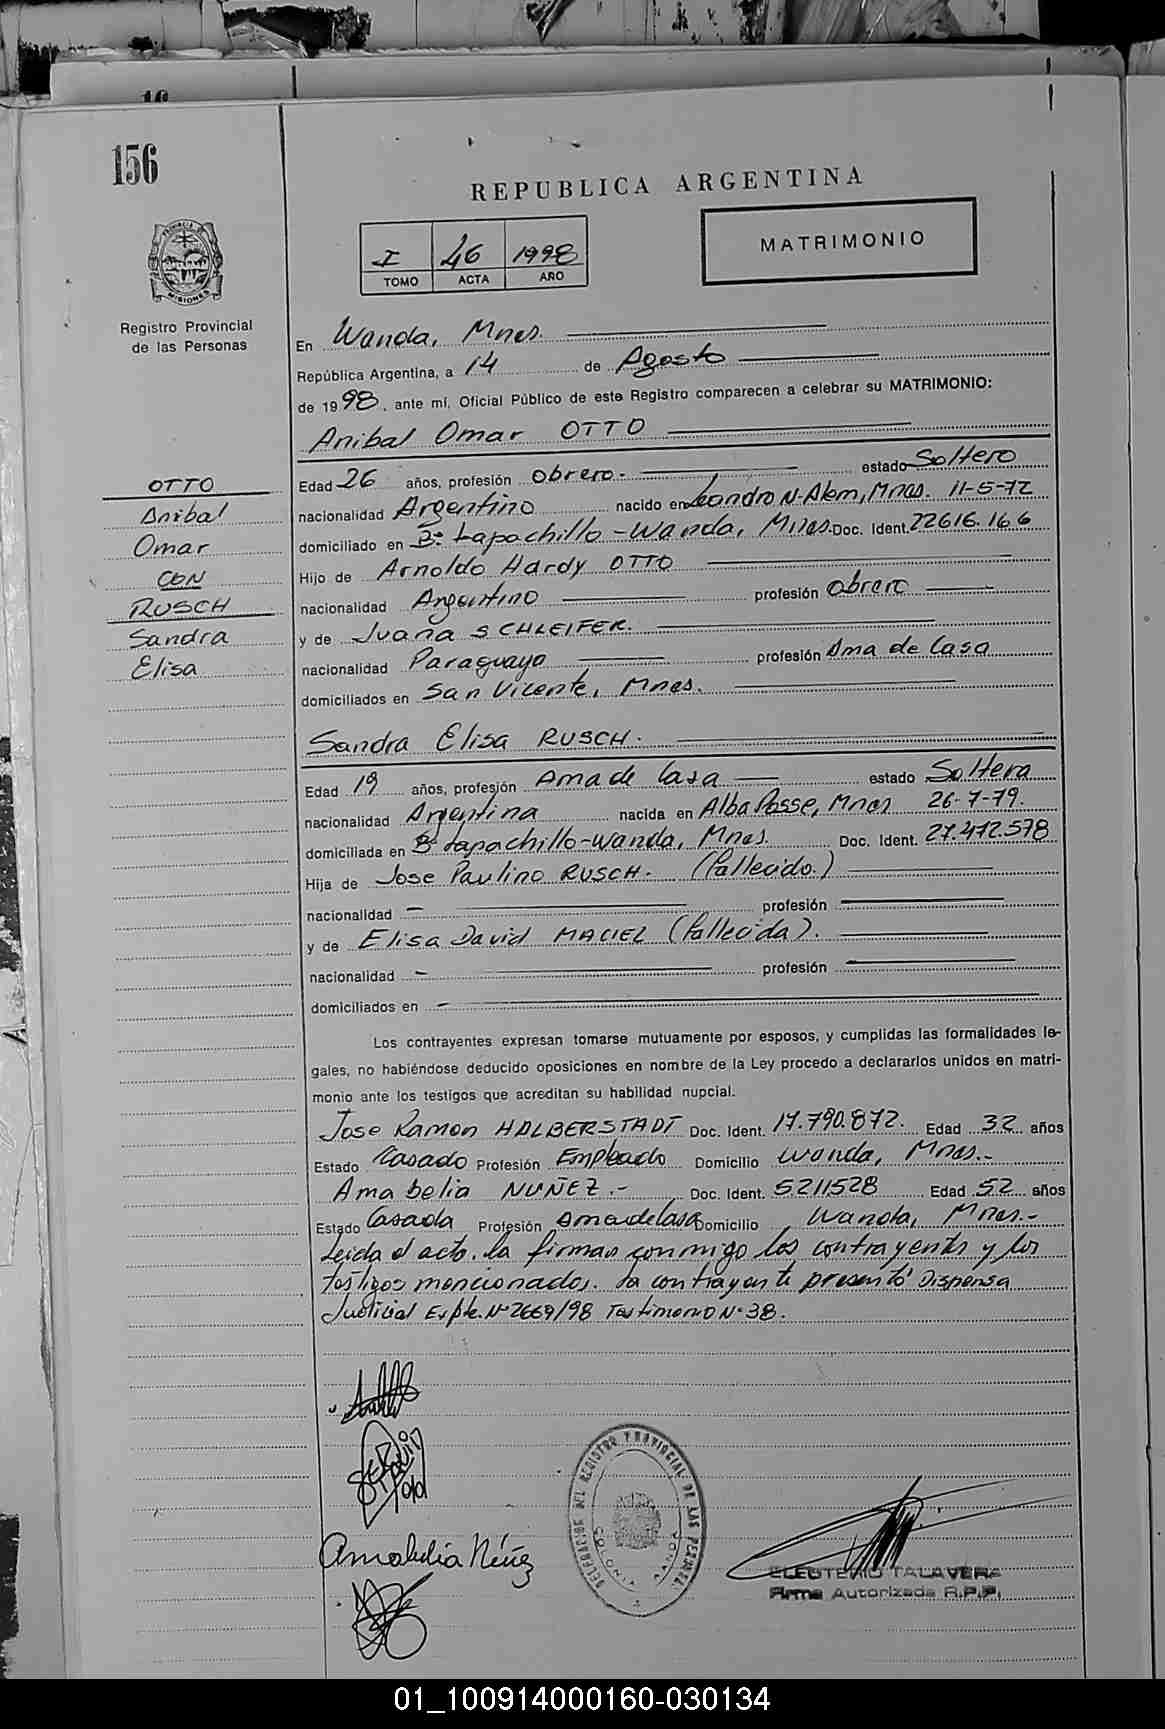 156
REPUBLICA ARGENTINA
I 46 1998
TOMO ACTA AÑO
MATRIMONIO
PROVINCIA DE MISIONES
Registro Provincial
de las Personas
En Wanda, Mnes.
República Argentina, a 14 de Agosto
de 1998, ante mí, Oficial Público de este Registro comparecen a celebrar su MATRIMONIO:
Anibal Omar OTTO
OTTO
Anibal
Omar
CON
RUSCH
Sandra
Elisa
Edad 26 años, profesión Obrero.- estado Soltero
nacionalidad Argentino nacido en Leandro N. Alem, Mnes. 11-5-72
domiciliado en B° Lapachillo-Wanda, Mnes. Doc. Ident. 22616.166
Hijo de Arnoldo Hardy OTTO
nacionalidad Argentino profesión Obrero
y de Juana SCHLEIFER.
nacionalidad Paraguaya profesión Ama de Casa
domiciliados en San Vicente, Mnes.
Sandra Elisa RUSCH.
Edad 19 años, profesión Ama de Casa estado Soltera
nacionalidad Argentina nacida en Alba Posse, Mnes 26-7-79.
domiciliada en B° Lapachillo-Wanda, Mnes. Doc. Ident. 27.472.578
Hija de Jose Paulino RUSCH. (Fallecido.)
nacionalidad - profesión
y de Elisa David MACIEL (Fallecida).
nacionalidad - profesión
domiciliados en -
Los contrayentes expresan tomarse mutuamente por esposos, y cumplidas las formalidades le-
gales, no habiéndose deducido oposiciones en nombre de la Ley procedo a declararlos unidos en matri-
monio ante los testigos que acreditan su habilidad nupcial.
Jose Ramon HALBERSTADT Doc. Ident. 17.790.872. Edad 32 años
Estado Casado Profesión Empleado Domicilio Wanda, Mnes.-
Amabelia NUÑEZ.- Doc. Ident. 5211528 Edad 52 años
Estado Casada Profesión Ama de Casa Domicilio Wanda, Mnes.-
Leida el acta. La firman conmigo los contrayentes y los
testigos mencionados. La contrayente presentó Dispensa
Judicial Expte. N° 2669/98 Testimonio N° 38.
DELEGACION DEL REGISTRO PROVINCIAL DE LAS PERSONAS
COLONIA WANDA
ELEUTERIO TALAVERA
Firma Autorizada R.P.P.
01_100914000160-030134